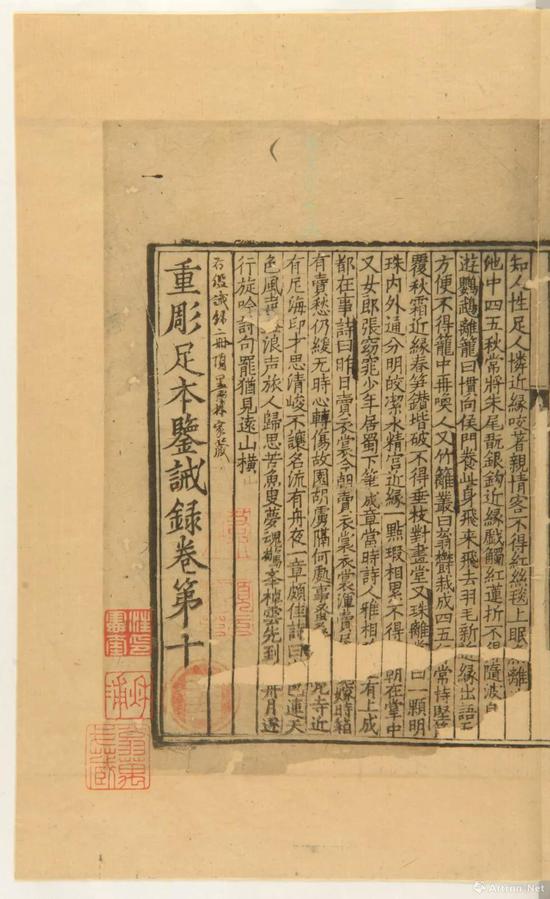 知人性足人憐近緣咬著親情客不得紅絲毯上眠離
池中四五秋常將朱尾翫銀鈎近緣戲觸紅蓮折不得隨波自
遊鸚鵡離籠曰慣向侯門養此身飛来飛去羽毛新近緣出語
方便不得籠中再喚人又竹離叢曰蓊鬱栽成四五行常持堅
覆秋霜近緣春笋鑽堦破不得垂枝對畫堂又珠離曰一顆明
珠内外通分明皎潔水精宮近緣一點瑕相累不得朝在掌中
又女郎張窈窕少年居蜀下筆成章當時詩人雅相有上成
都在事詩曰昨日賣衣裳今朝賣衣裳衣裳渾賣嫁時箱
有賣愁仍緩無時心轉傷故園胡虜隔何處事光寺近
有尼海印才思清峻不讓名流有舟夜一章頗佳詩曰色連天
色風声浪声旅人歸思苦魚叟夢魂驚棹雲先到舟月逐
行旋吟詩句罷猶見遠山橫
右鑑誡錄二冊項墨林家藏
重彫足本鑒誡錄卷第十
翁萬戈藏
Artron.Net